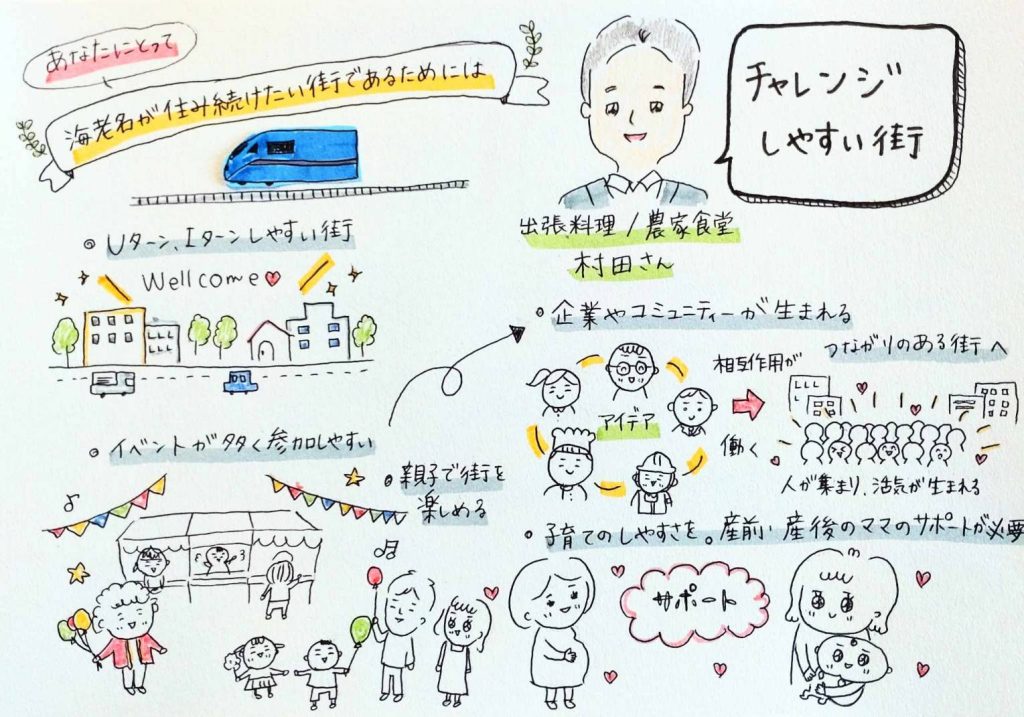 あなたにとって
海老名が住み続けたい街であるためには
チャレンジ
しやすい街
出張料理/農家食堂
村田さん
◦ Uターン、Iターンしやすい街
Wellcome
◦ イベントが多く参加しやすい
◦ 親子で街を
楽しめる
◦ 企業やコミュニティーが生まれる
アイデア
相互作用が
働く
つながりのある街へ
人が集まり、活気が生まれる
◦ 子育てのしやすさを。産前産後のママのサポートが必要
サポート